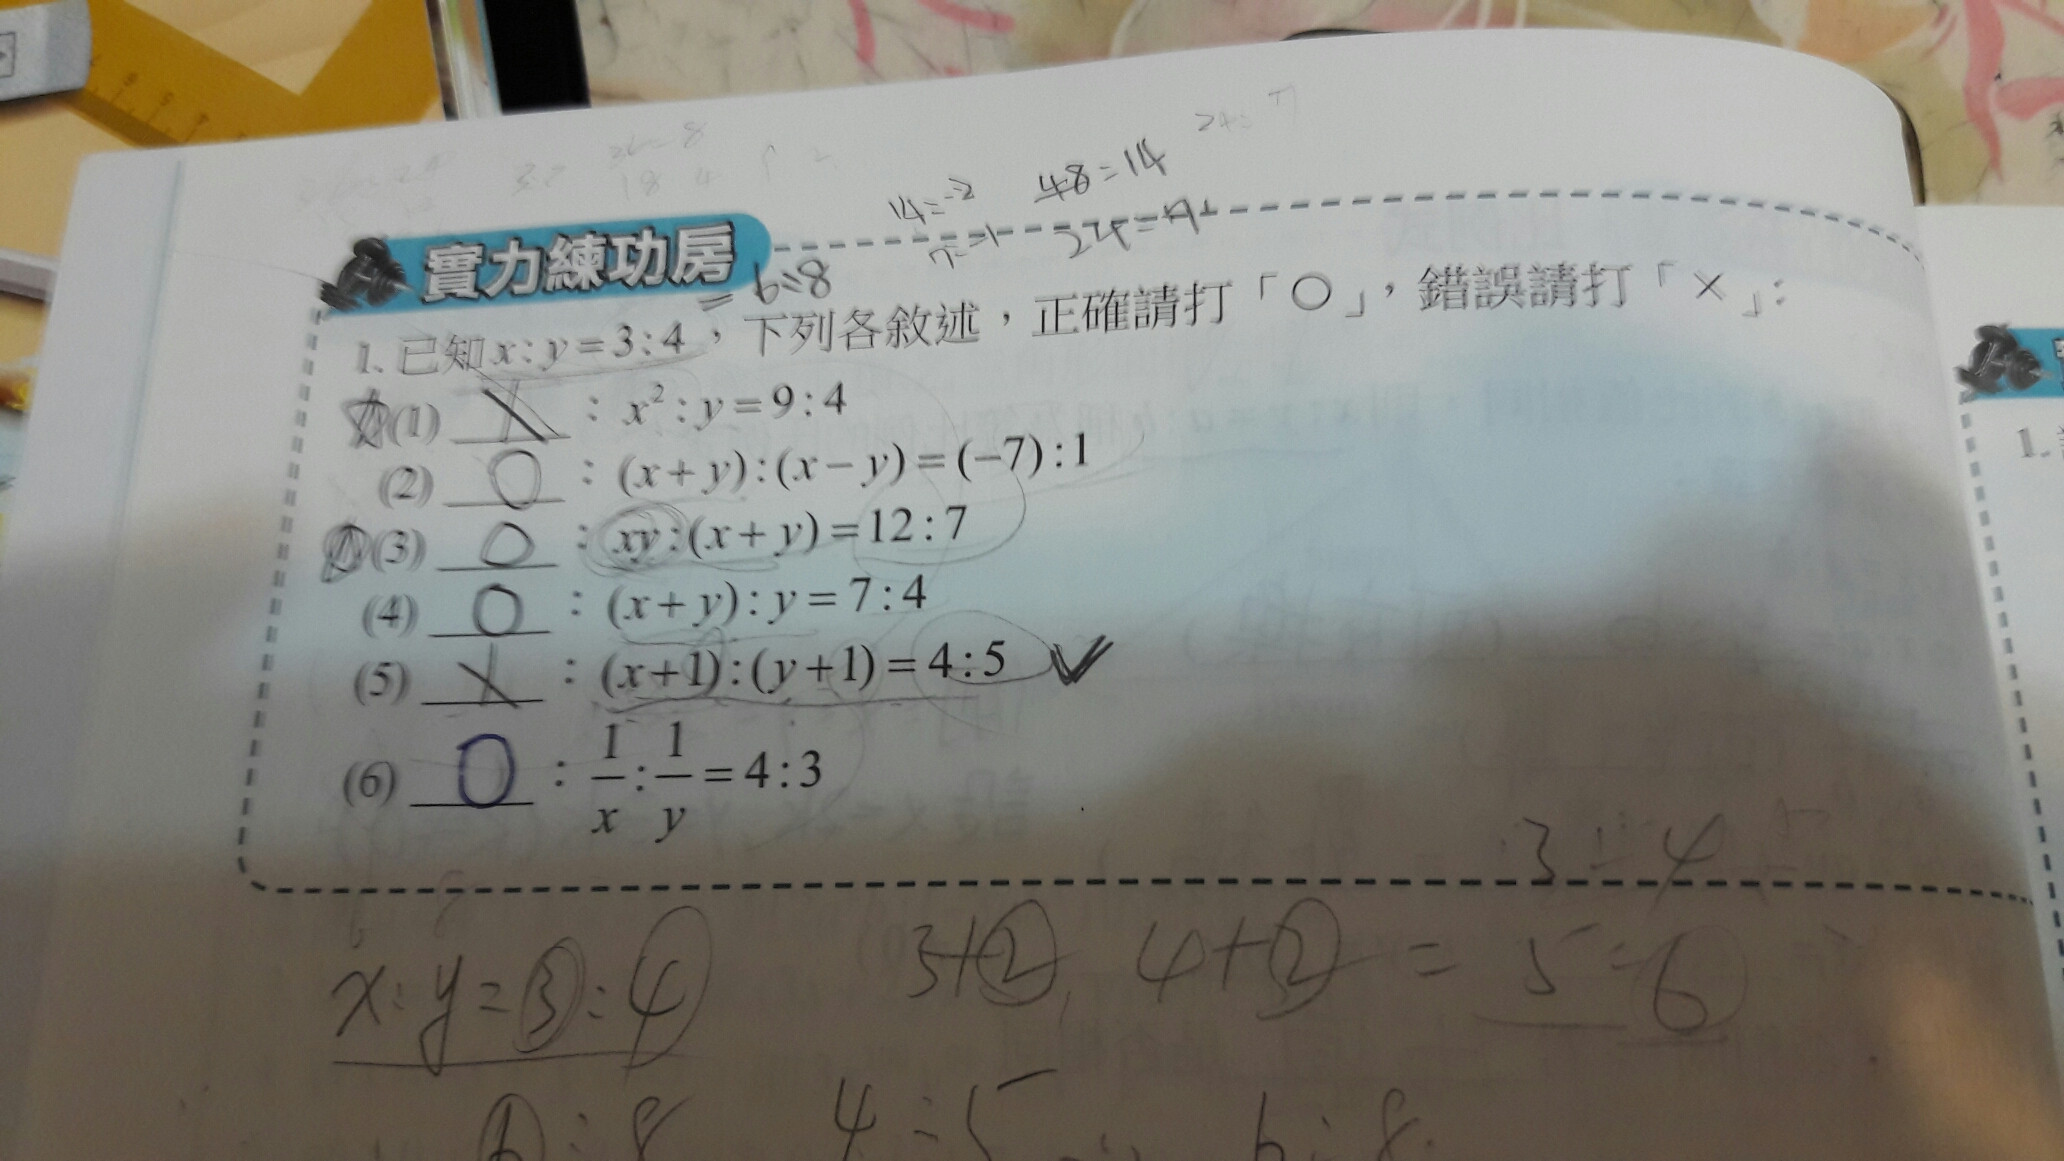 14=-2
48=14
7=-1
24=7
實力練功房
=6:8
1.已知x:y=3:4，下列各敘述，正確請打「○」，錯誤請打「×」：
(1) × : x²:y=9:4
(2) ○ : (x+y):(x−y)=(−7):1
(3) ○ : xy:(x+y)=12:7
(4) ○ : (x+y):y=7:4
(5) × : (x+1):(y+1)=4:5 ✓
(6) ○ : 1/x:1/y=4:3
3:4
x:y=3:4
3+2, 4+2 = 5:6
6:8
4:5
6:8
1.